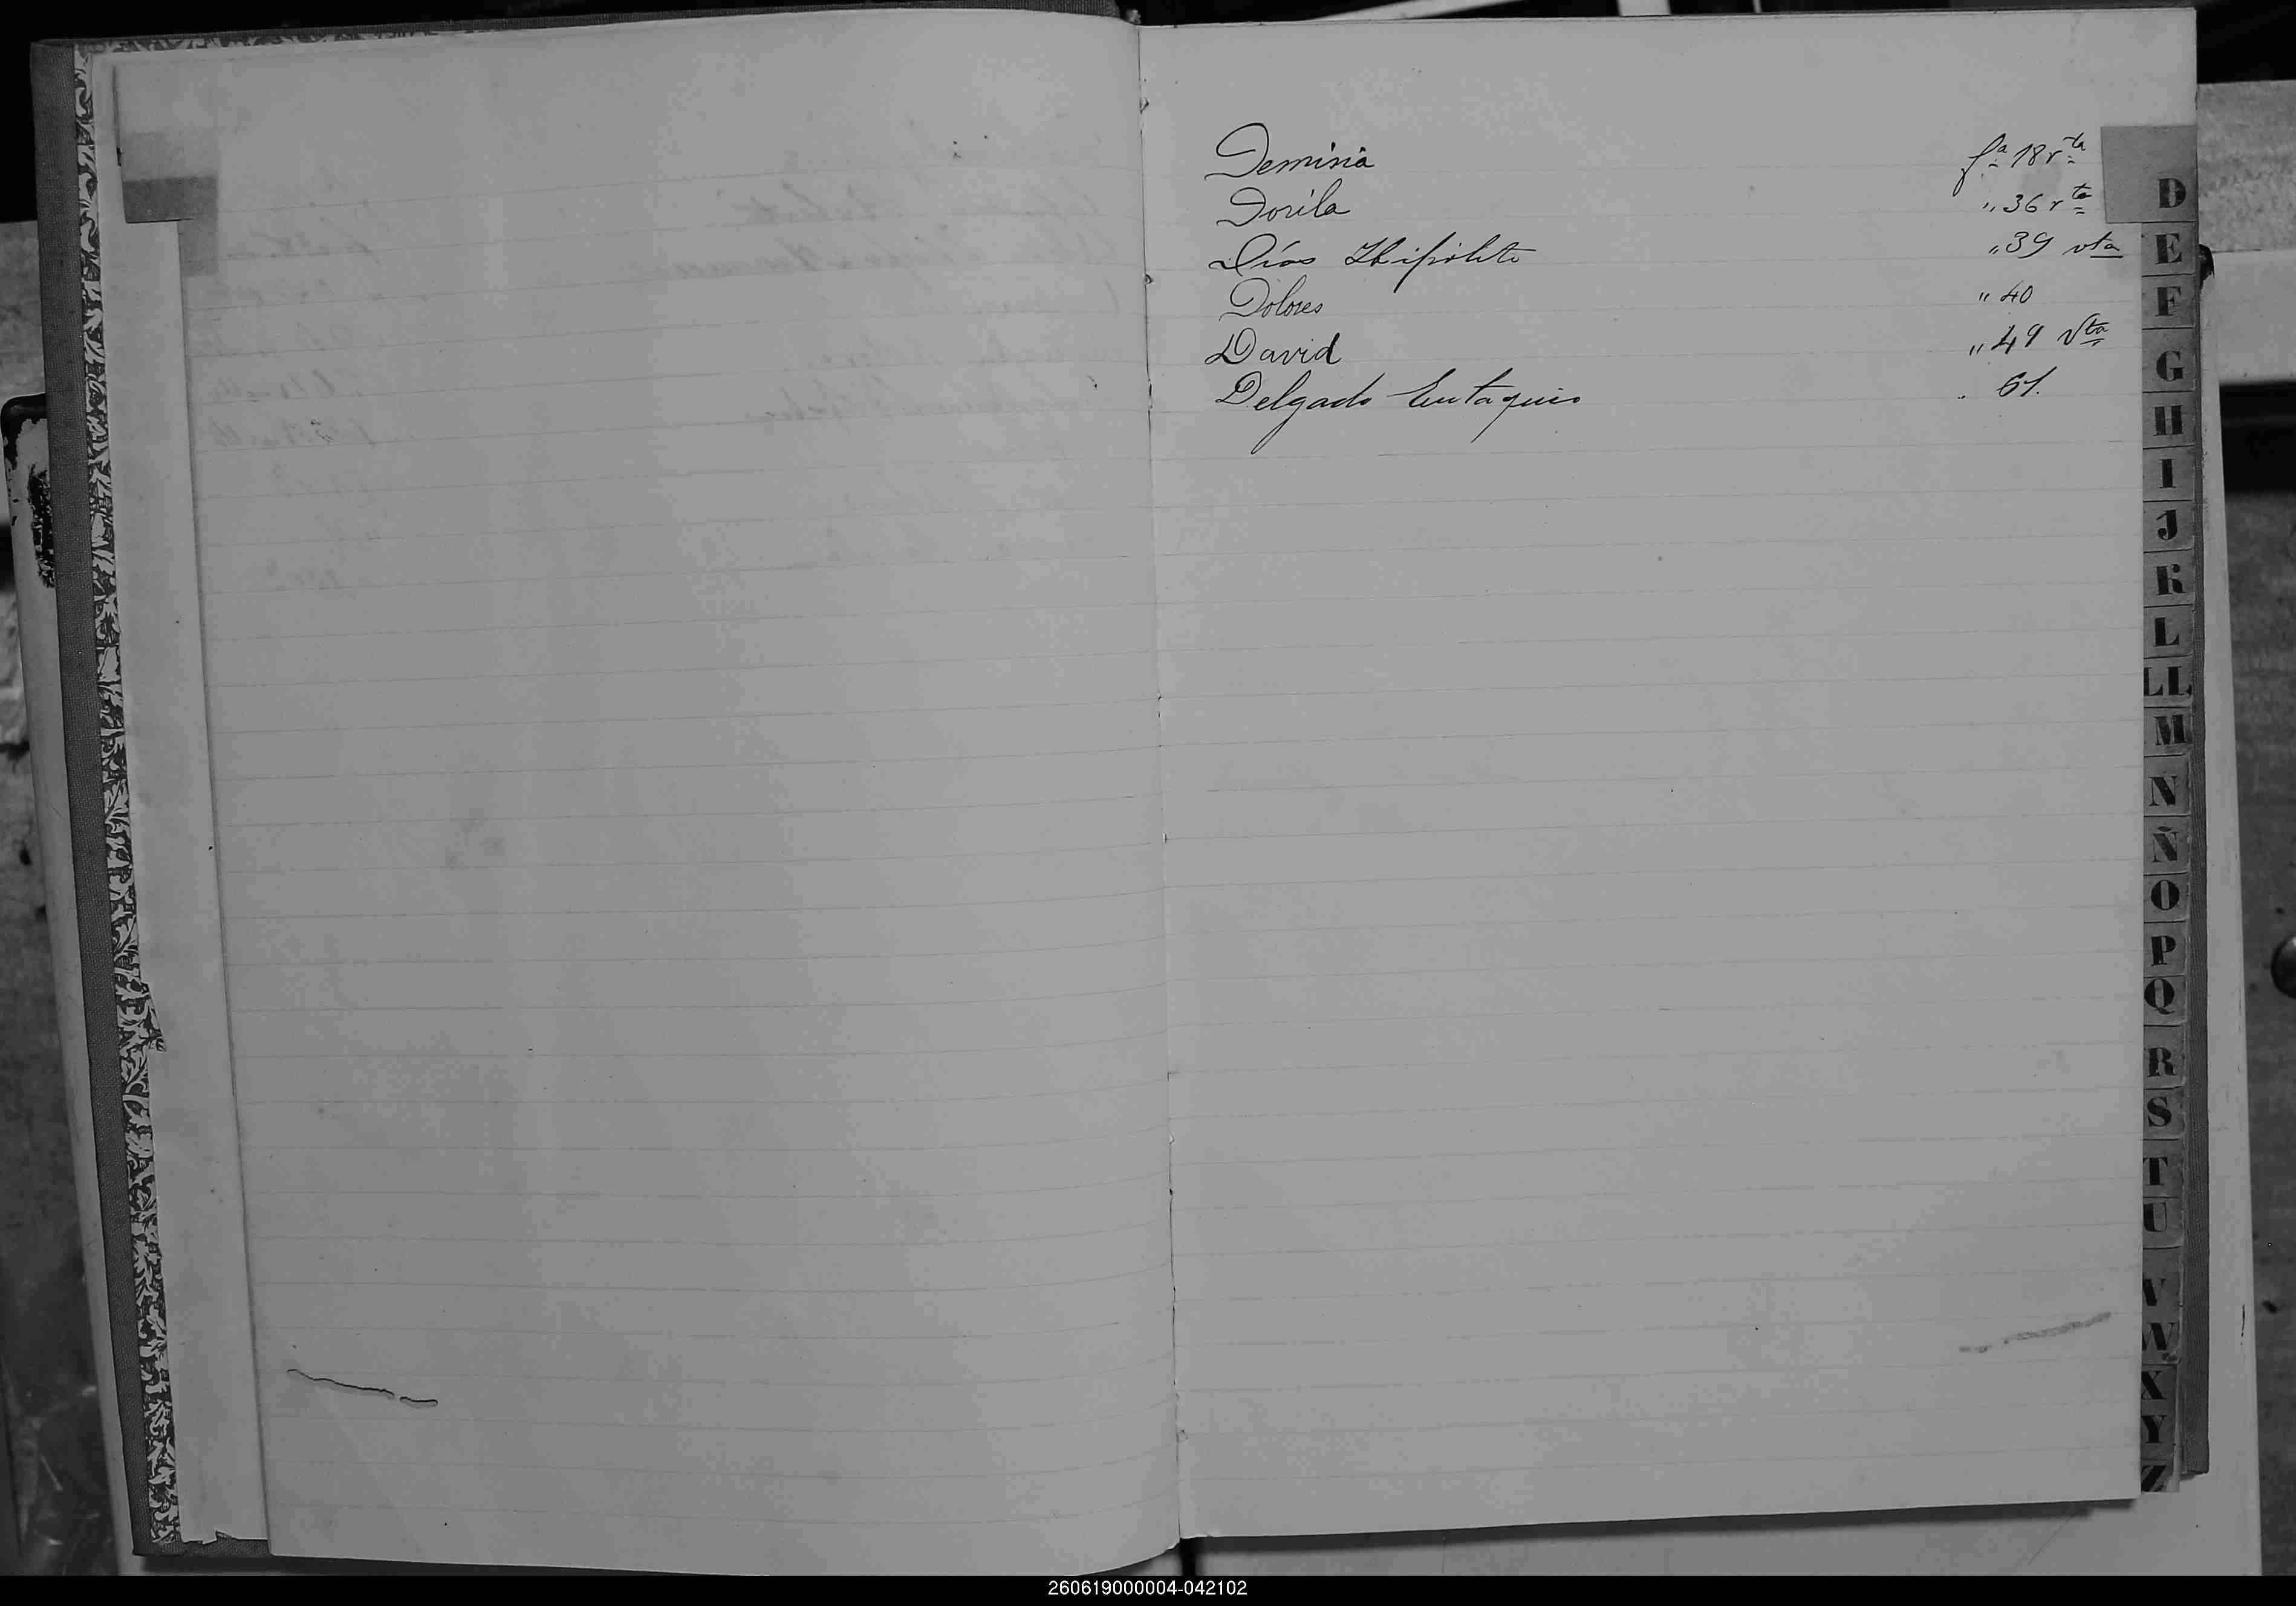 Deminia fª 18 vta
Dorila " 36 vta
Días Hipólito " 39 vta
Dolores " 40
David " 49 vta
Delgado Eutaquio " 61.
D
E
F
G
H
I
J
K
L
LL
M
N
Ñ
O
P
Q
R
S
T
U
V
W
X
Y
Z
260619000004-042102